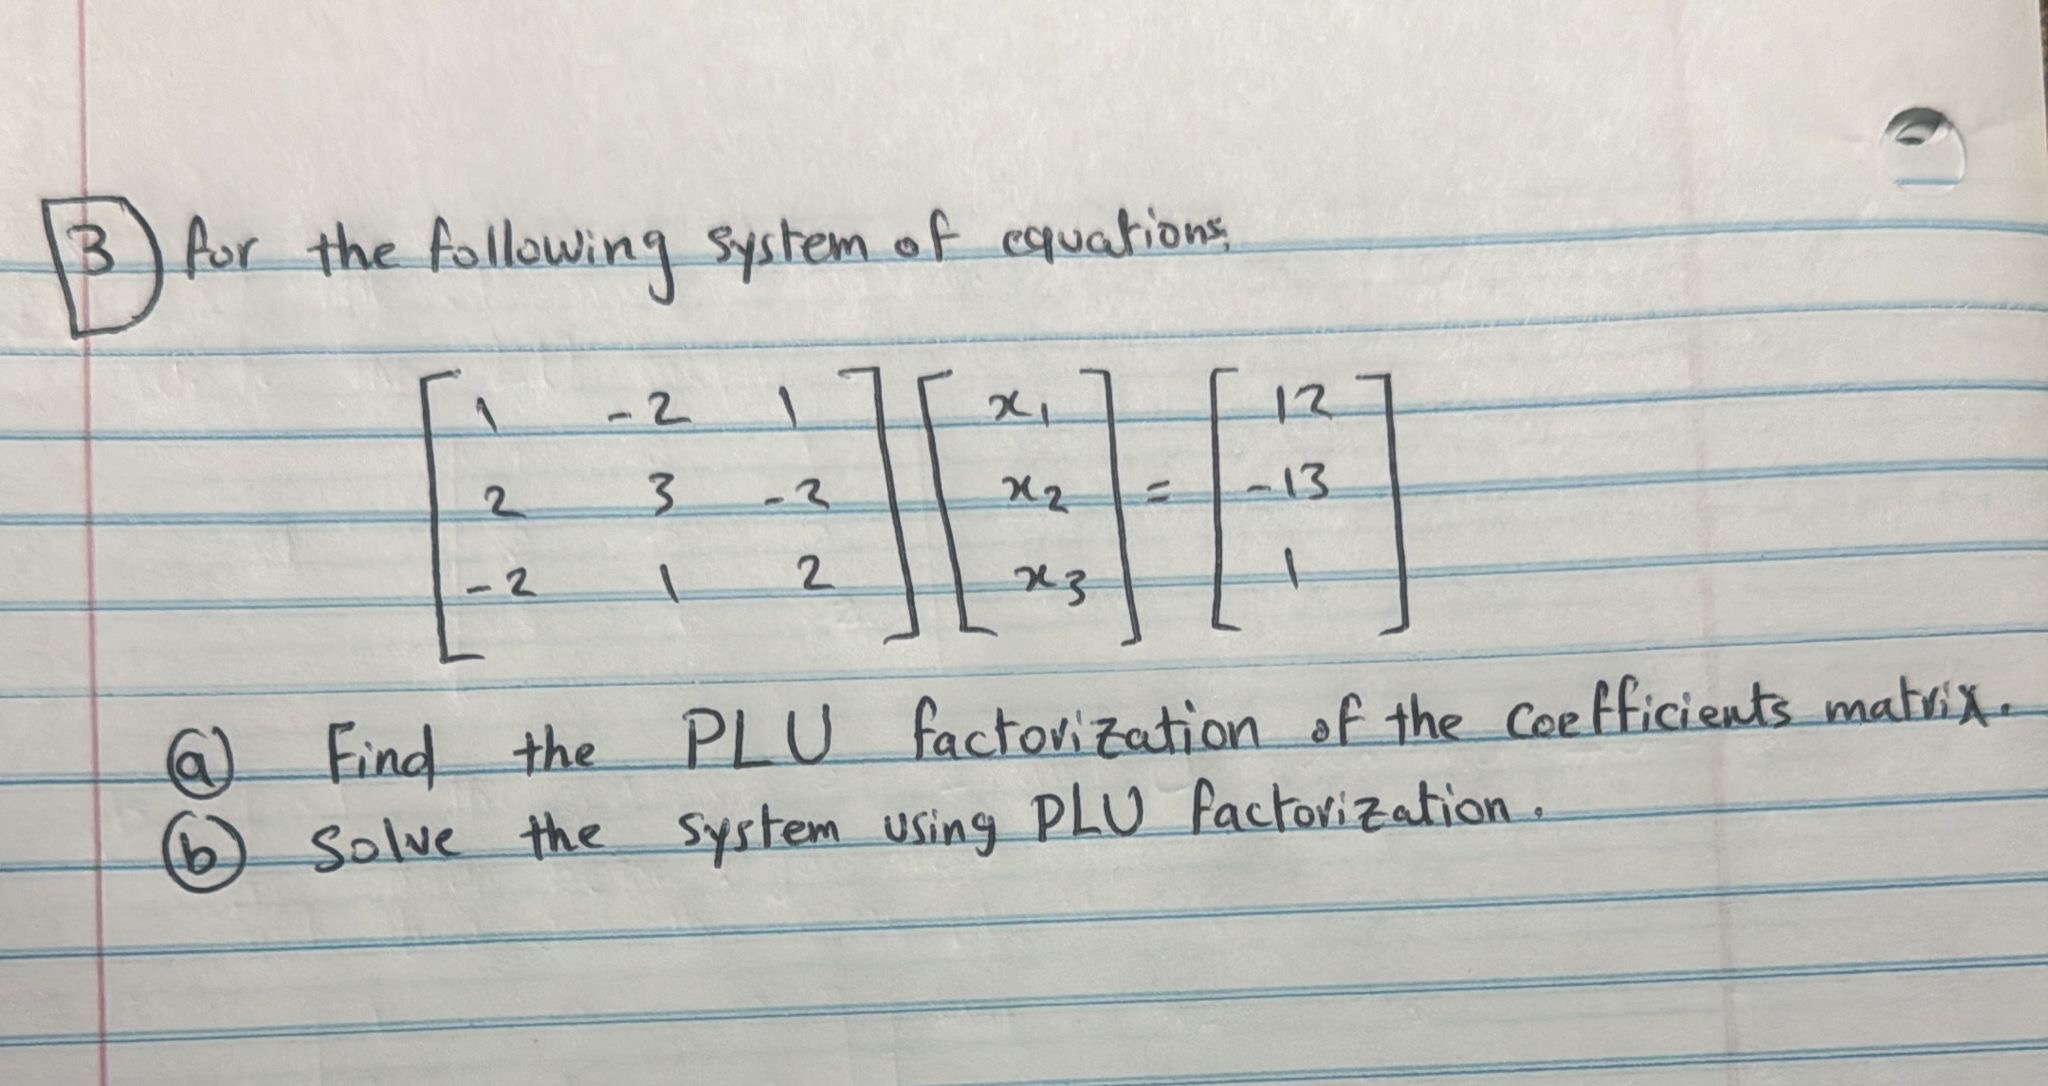 3) for the following system of equations;
[ 1 -2 1 ] [ x1 ] = [ 12 ]
[ 2 3 -2 ] [ x2 ] [ -13 ]
[ -2 1 2 ] [ x3 ] [ 1 ]
(a) Find the PLU factorization of the coefficients matrix.
(b) Solve the system using PLU factorization.